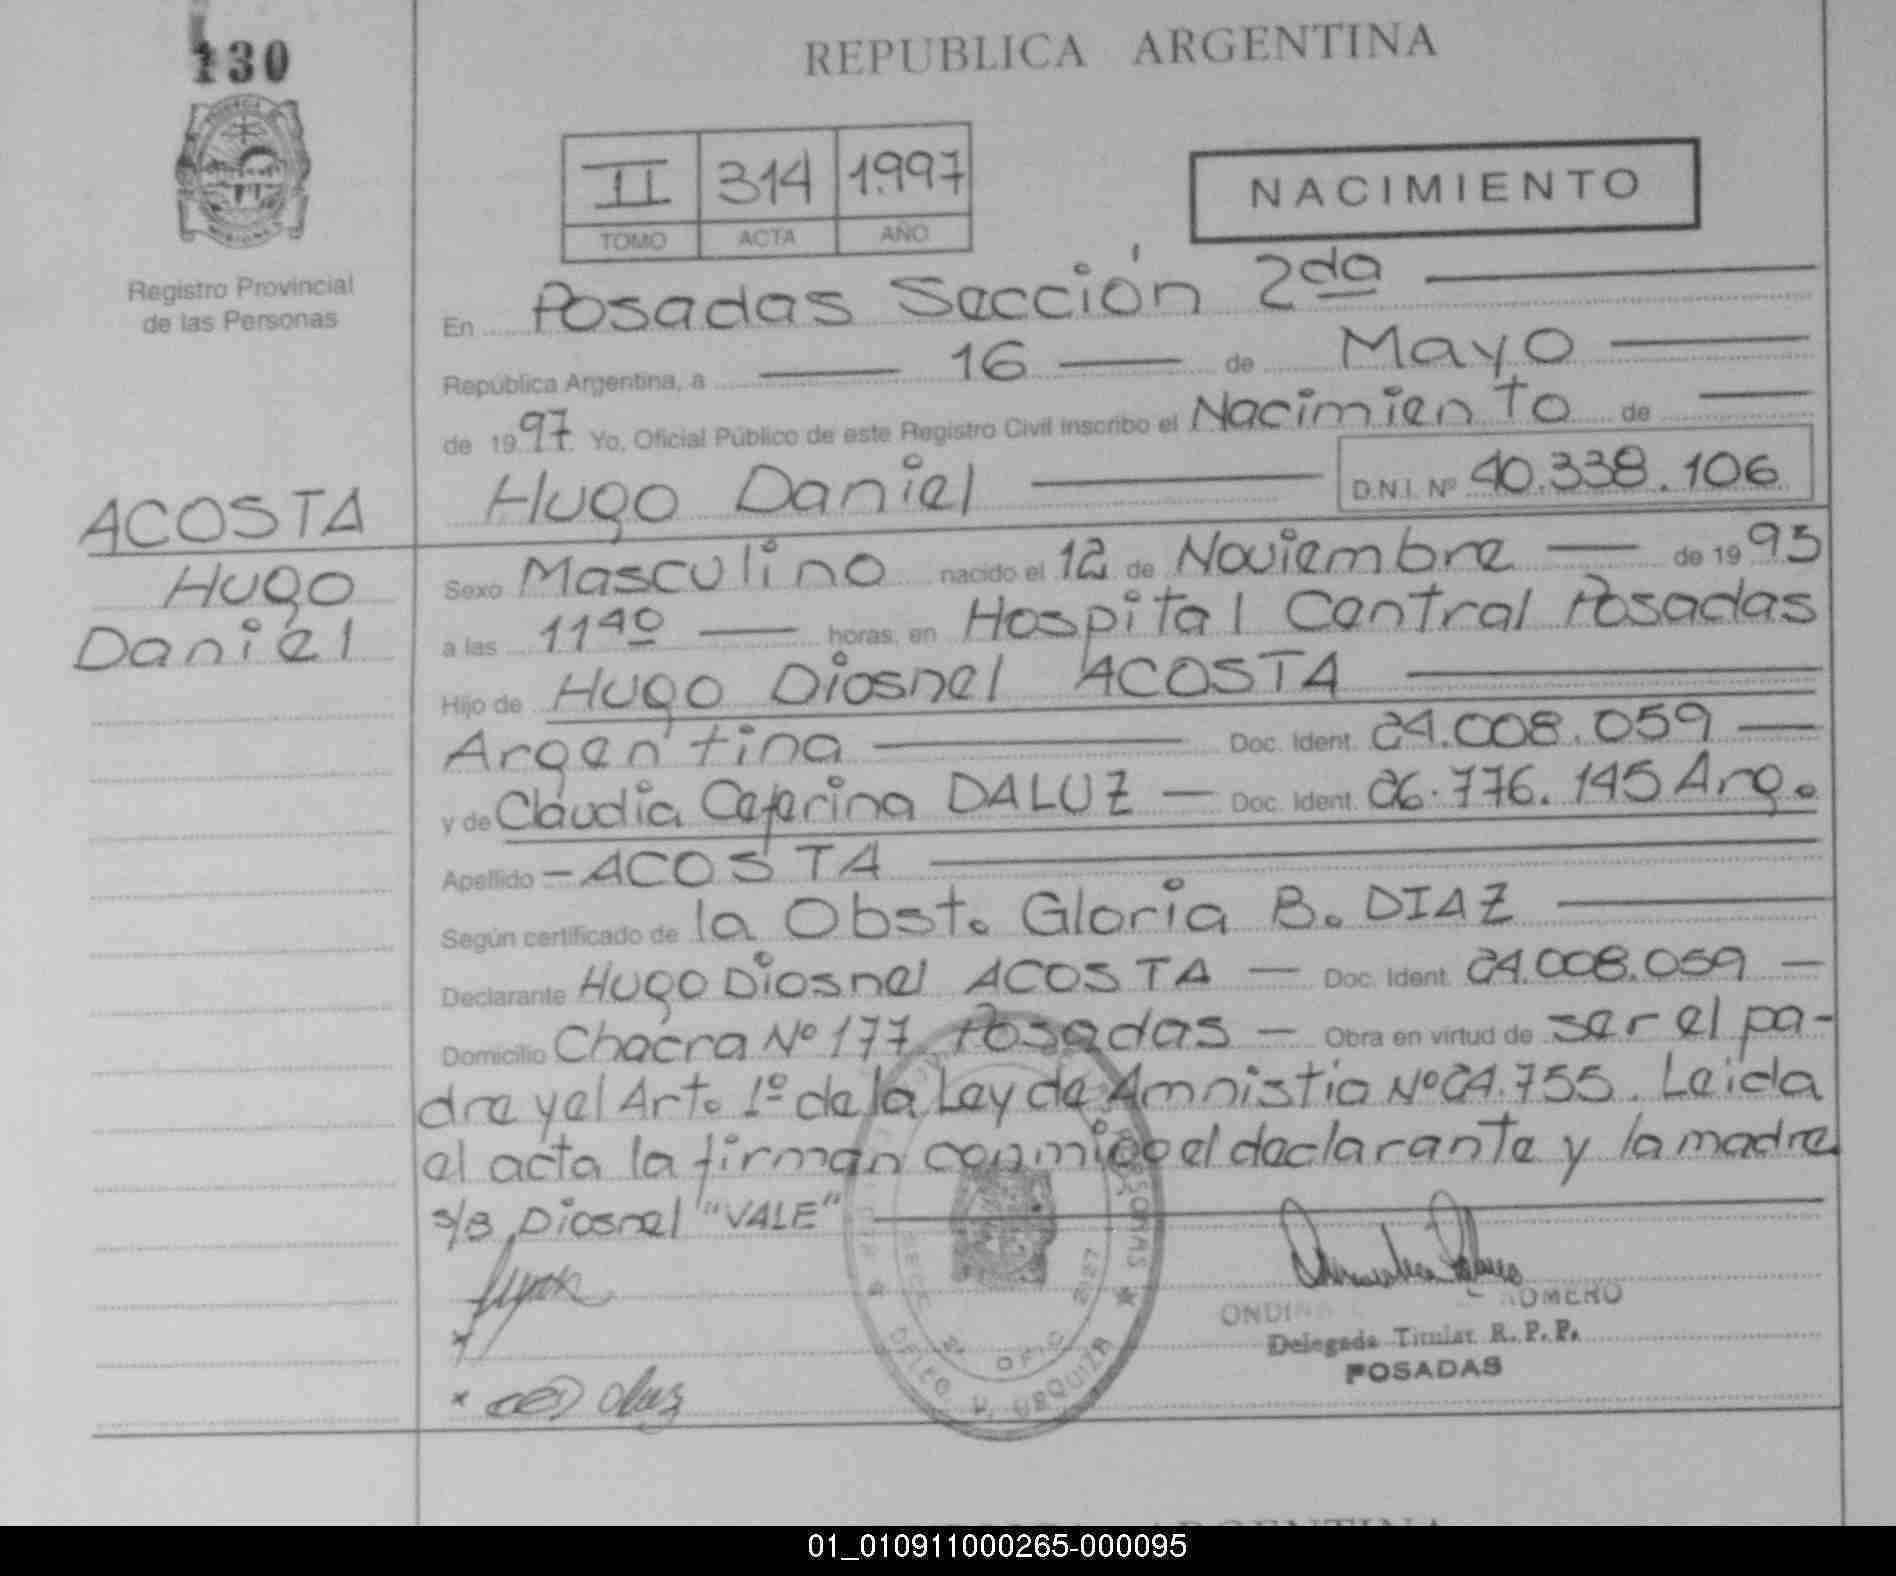 130
REPUBLICA ARGENTINA
II 314 1.997
TOMO ACTA AÑO
NACIMIENTO
Registro Provincial
de las Personas
En Posadas Sección 2da
República Argentina, a 16 de Mayo
de 1997 Yo, Oficial Público de este Registro Civil inscribo el Nacimiento de
Hugo Daniel D.N.I. Nº 40.338.106
ACOSTA
Hugo
Daniel
Sexo Masculino nacido el 12 de Noviembre de 1993
a las 11 40 horas, en Hospital Central Posadas
Hijo de Hugo Diosnel ACOSTA
Argentina Doc. Ident. 24.008.059
y de Claudia Ceferina DALUZ Doc. Ident. 26.776.145 Arg.
Apellido ACOSTA
Según certificado de la Obst. Gloria B. DIAZ
Declarante Hugo Diosnel ACOSTA Doc. Ident. 24.008.059
Domicilio Chacra Nº 177 Posadas Obra en virtud de ser el pa-
dre y el Art. 1º de la Ley de Amnistia Nº 24.755. Leida
el acta la firman conmigo el declarante y la madre
s/B Diosnel "VALE"
ROMERO
Delegada Titular R.P.P.
POSADAS
01_010911000265-000095